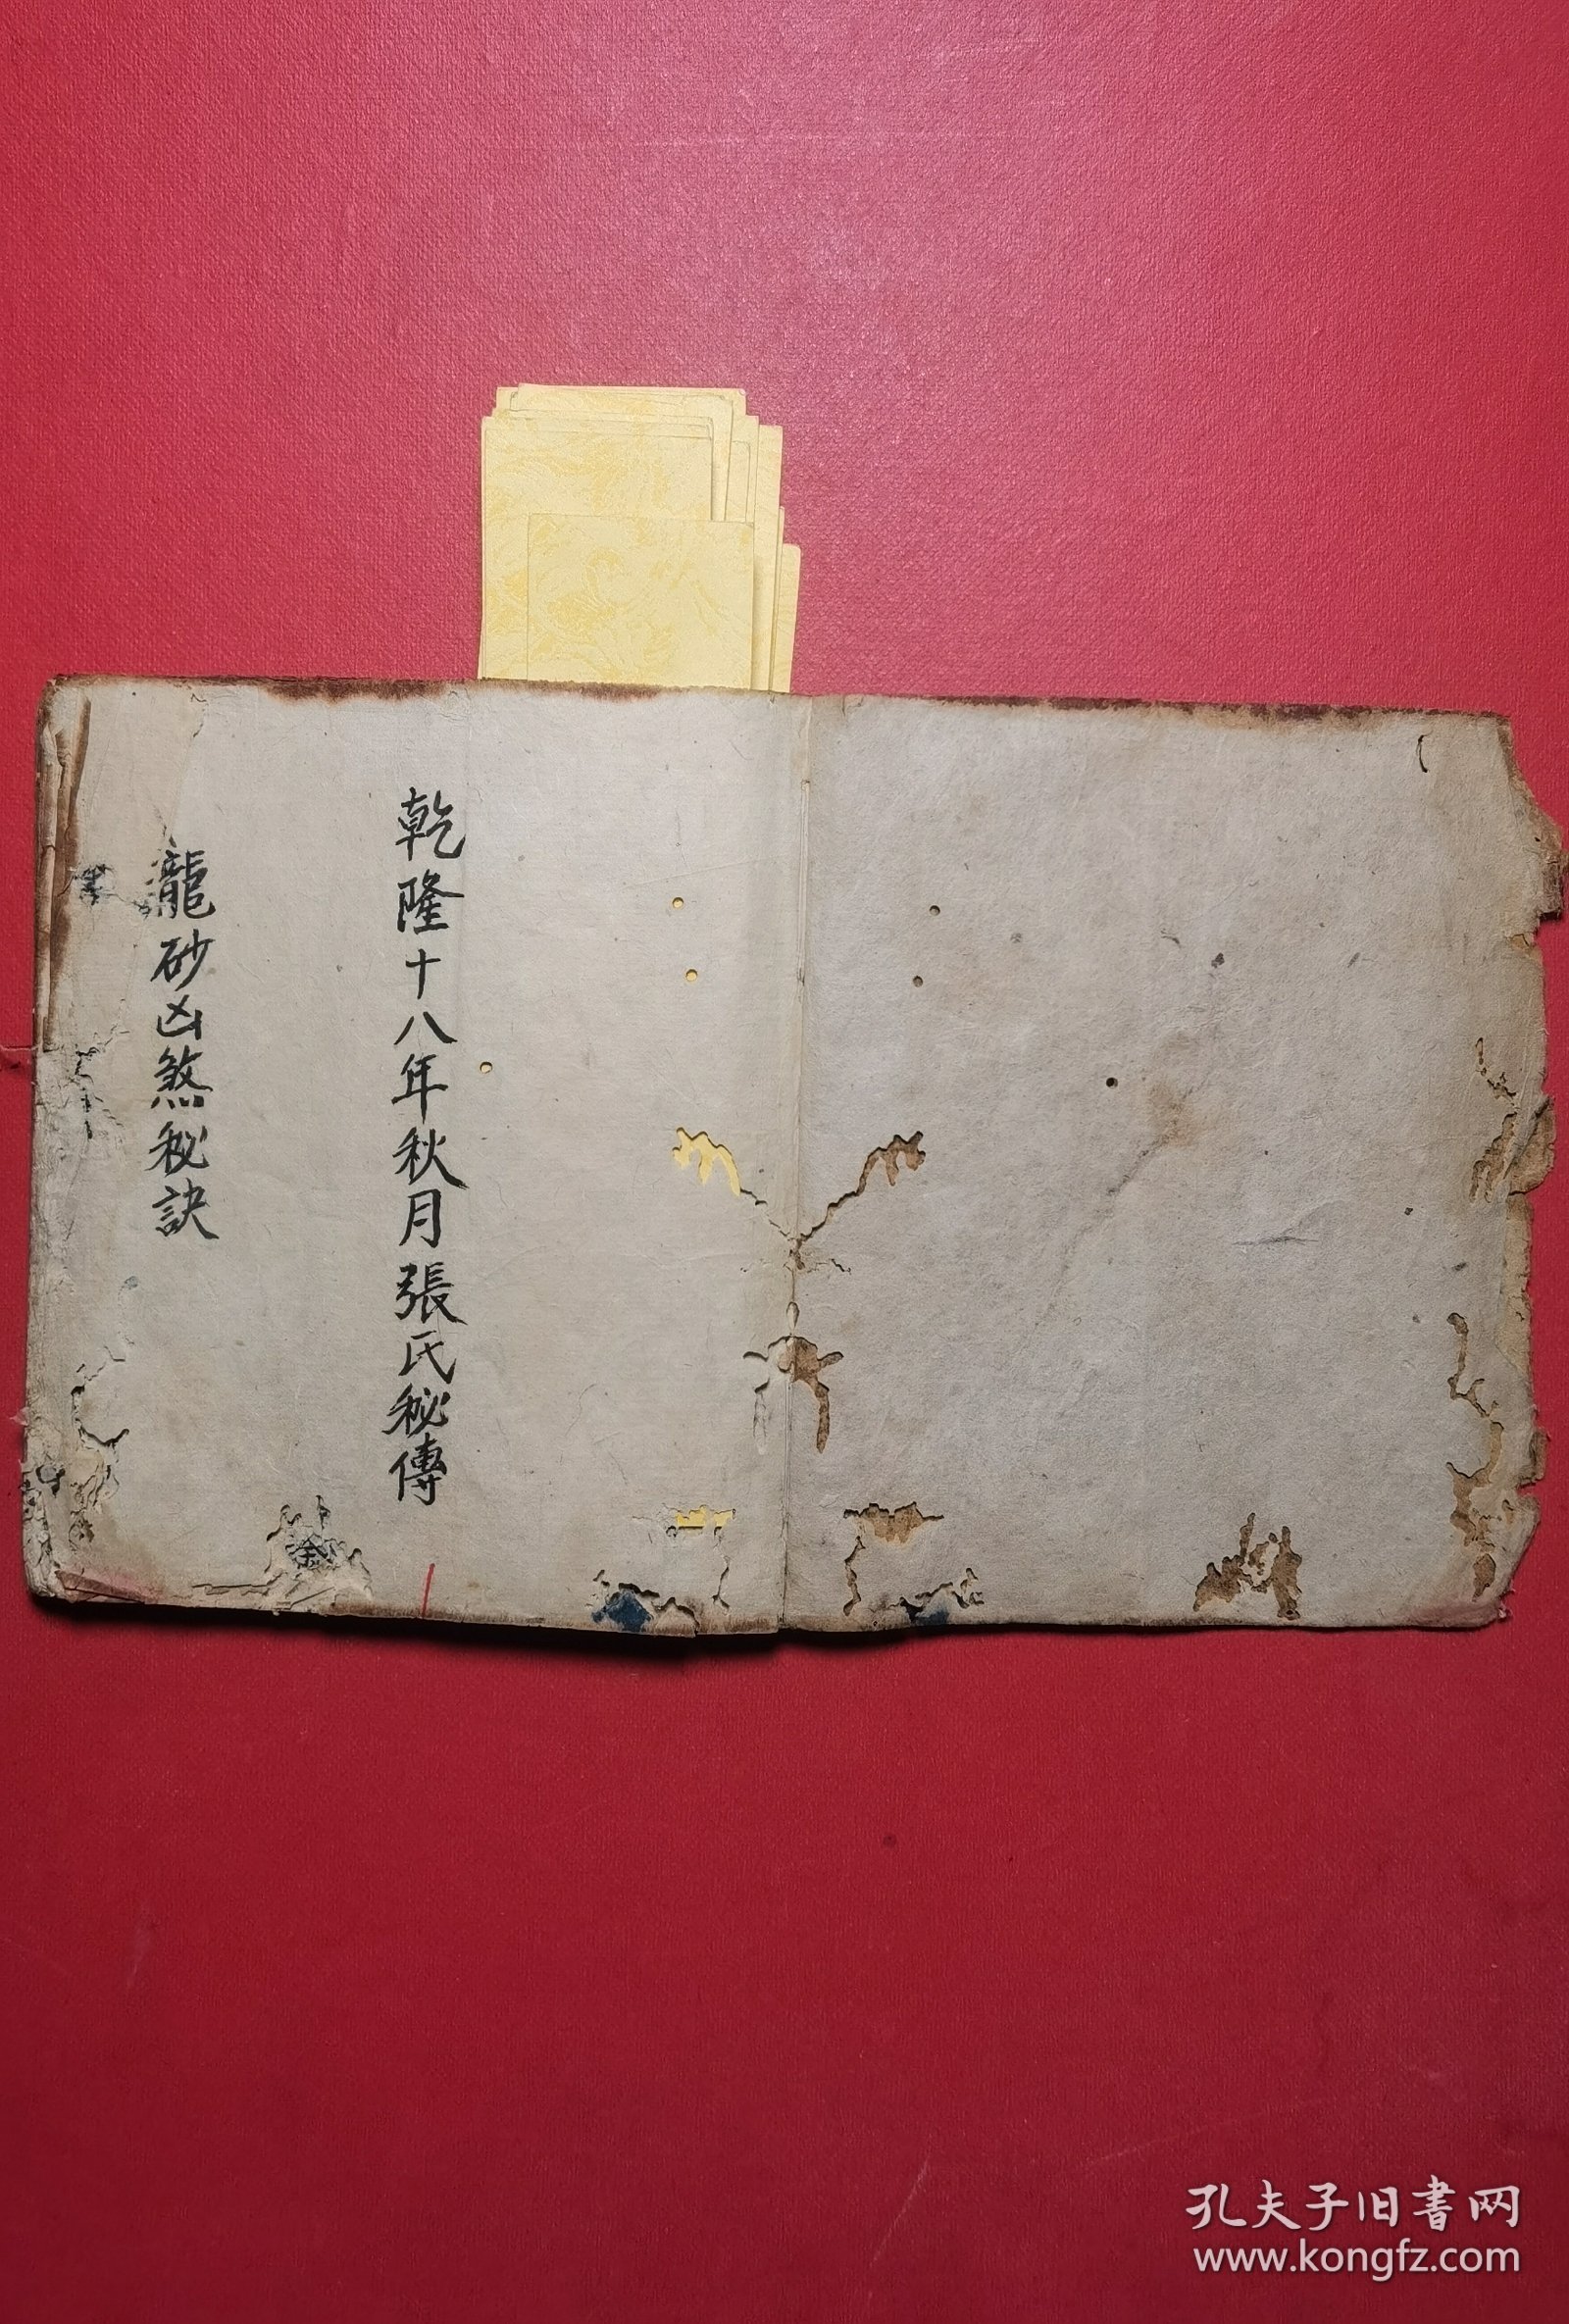 乾隆十八年秋月張氏秘傳
龍砂凶煞秘訣
孔夫子旧書网
www.kongfz.com